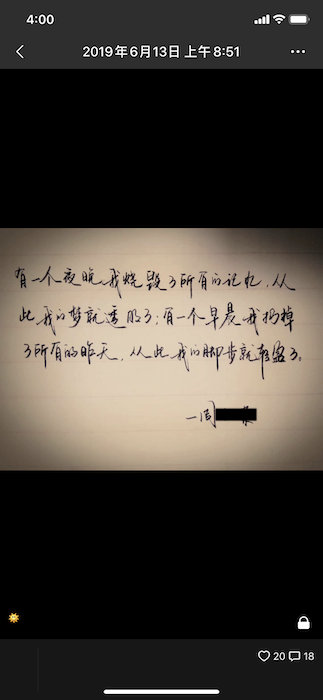 4:00
2019年6月13日 上午8:51
有一个夜晚我烧毁了所有的记忆，从
此我的梦就透明了；有一个早晨我扔掉
了所有的昨天，从此我的脚步就轻盈了。
20 18